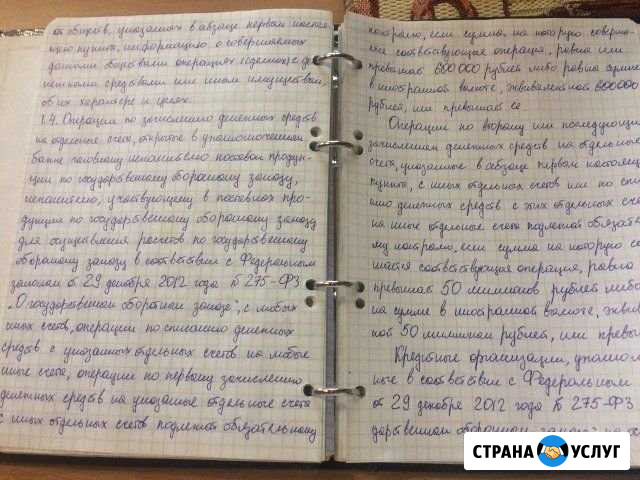 от обществ, указанных в абзаце первом настоя-
щего пункта, информацию о совершаемых
данными обществами операциях с де-
нежными средствами или иным имуществом,
об их характере и целях.
1.4. Операции по зачислению денежных средств
на отдельные счета, открытые в уполномоченном
банке головному исполнителю поставок продук-
ции по государственному оборонному заказу,
исполнителю, участвующему в поставках про-
дукции по государственному оборонному заказу
для осуществления расчетов по государственному
оборонному заказу в соответствии с Федеральным
законом от 29 декабря 2012 года № 275-ФЗ
"О государственном оборонном заказе", с любых
иных счетов, операции по списанию денежных
средств с указанных отдельных счетов на любые
иные счета, операции по первому зачислению
денежных средств на указанные отдельные счета
с иных отдельных счетов подлежат обязательному
контролю, если сумма, на которую соверша-
соответствующая операция, равна или
превышает 600 000 рублей либо равна сумме
в иностранной валюте, эквивалентной 600000
рублей, или превышает ее.
Операции по второму или последующим
зачислениям денежных средств на отдельные
счета, указанные в абзаце первом настоящ
пункта, с иных отдельных счетов или по спи
санию денежных средств с этих отдельных сче
на иные отдельные счета подлежат обязатель
му контролю, если сумма, на которую со
шается соответствующая операция, равна
превышает 50 миллионов рублей либо
на сумме в иностранной валюте, эквив
ной 50 миллионам рублей, или превы
Кредитные организации, уполном
ные в соответствии с Федеральным
от 29 декабря 2012 года № 275-ФЗ
дарственном оборонном
СТРАНА УСЛУГ